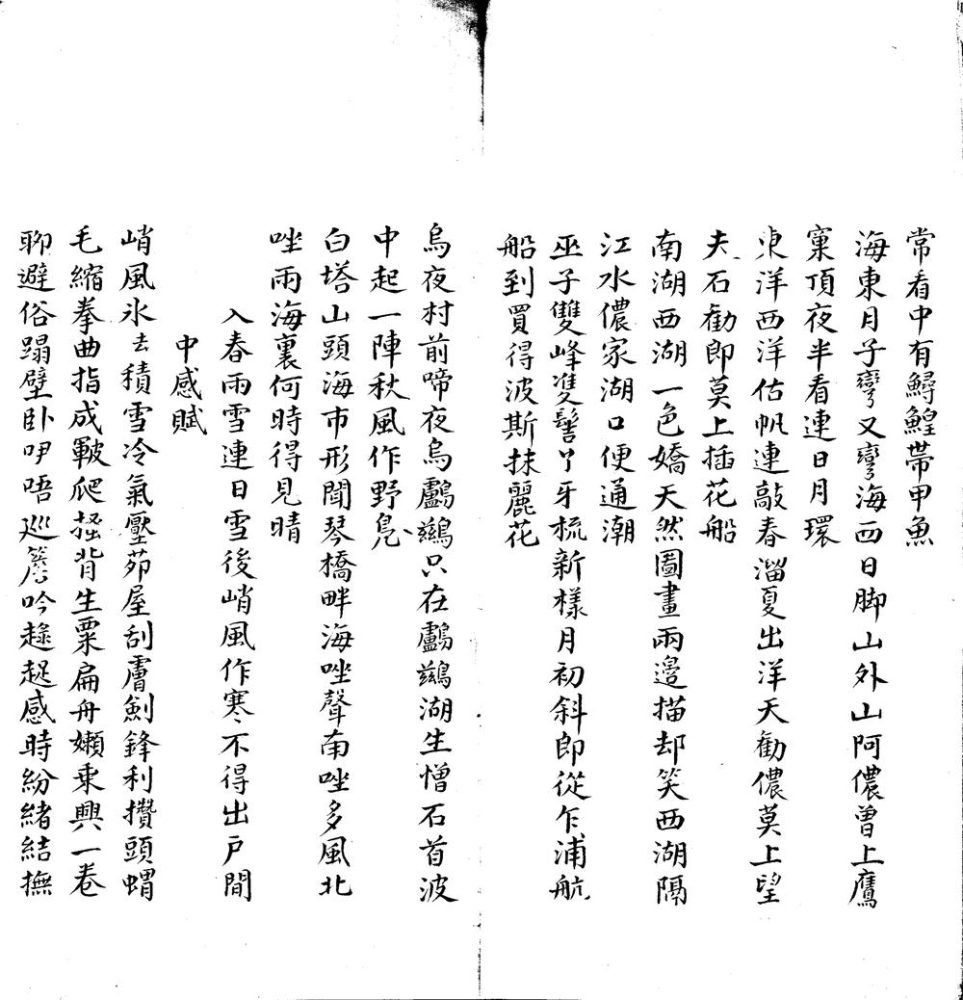 常看中有鱘鰉帶甲魚
海東月子彎又彎海西日脚山外山阿儂曽上鷹
窠頂夜半看連日月環
東洋西洋估帆連敲春溜夏出洋天勸儂莫上望
夫石勸郎莫上插花船
南湖西湖一色嬌天然圖畫兩邊描却笑西湖隔
江水儂家湖口便通潮
巫子雙峰雙髻丫牙梳新樣月初斜郎從乍浦航
船到買得波斯抹麗花
烏夜村前啼夜烏鸕鷀只在鸕鷀湖生憎石首波
中起一陣秋風作野鳧
白塔山頭海市形聞琴橋畔海唑聲南唑多風北
唑雨海裏何時得見晴
入春雨雪連日雪後峭風作寒不得出戶間
中感賦
峭風氷去積雪冷氣壓茆屋刮膚劍鋒利攢頭蝟
毛縮拳曲指成皸爬搔背生粟扁舟嬾乘興一卷
聊避俗蹋壁卧咿唔巡簷吟趦趄感時紛緒結撫